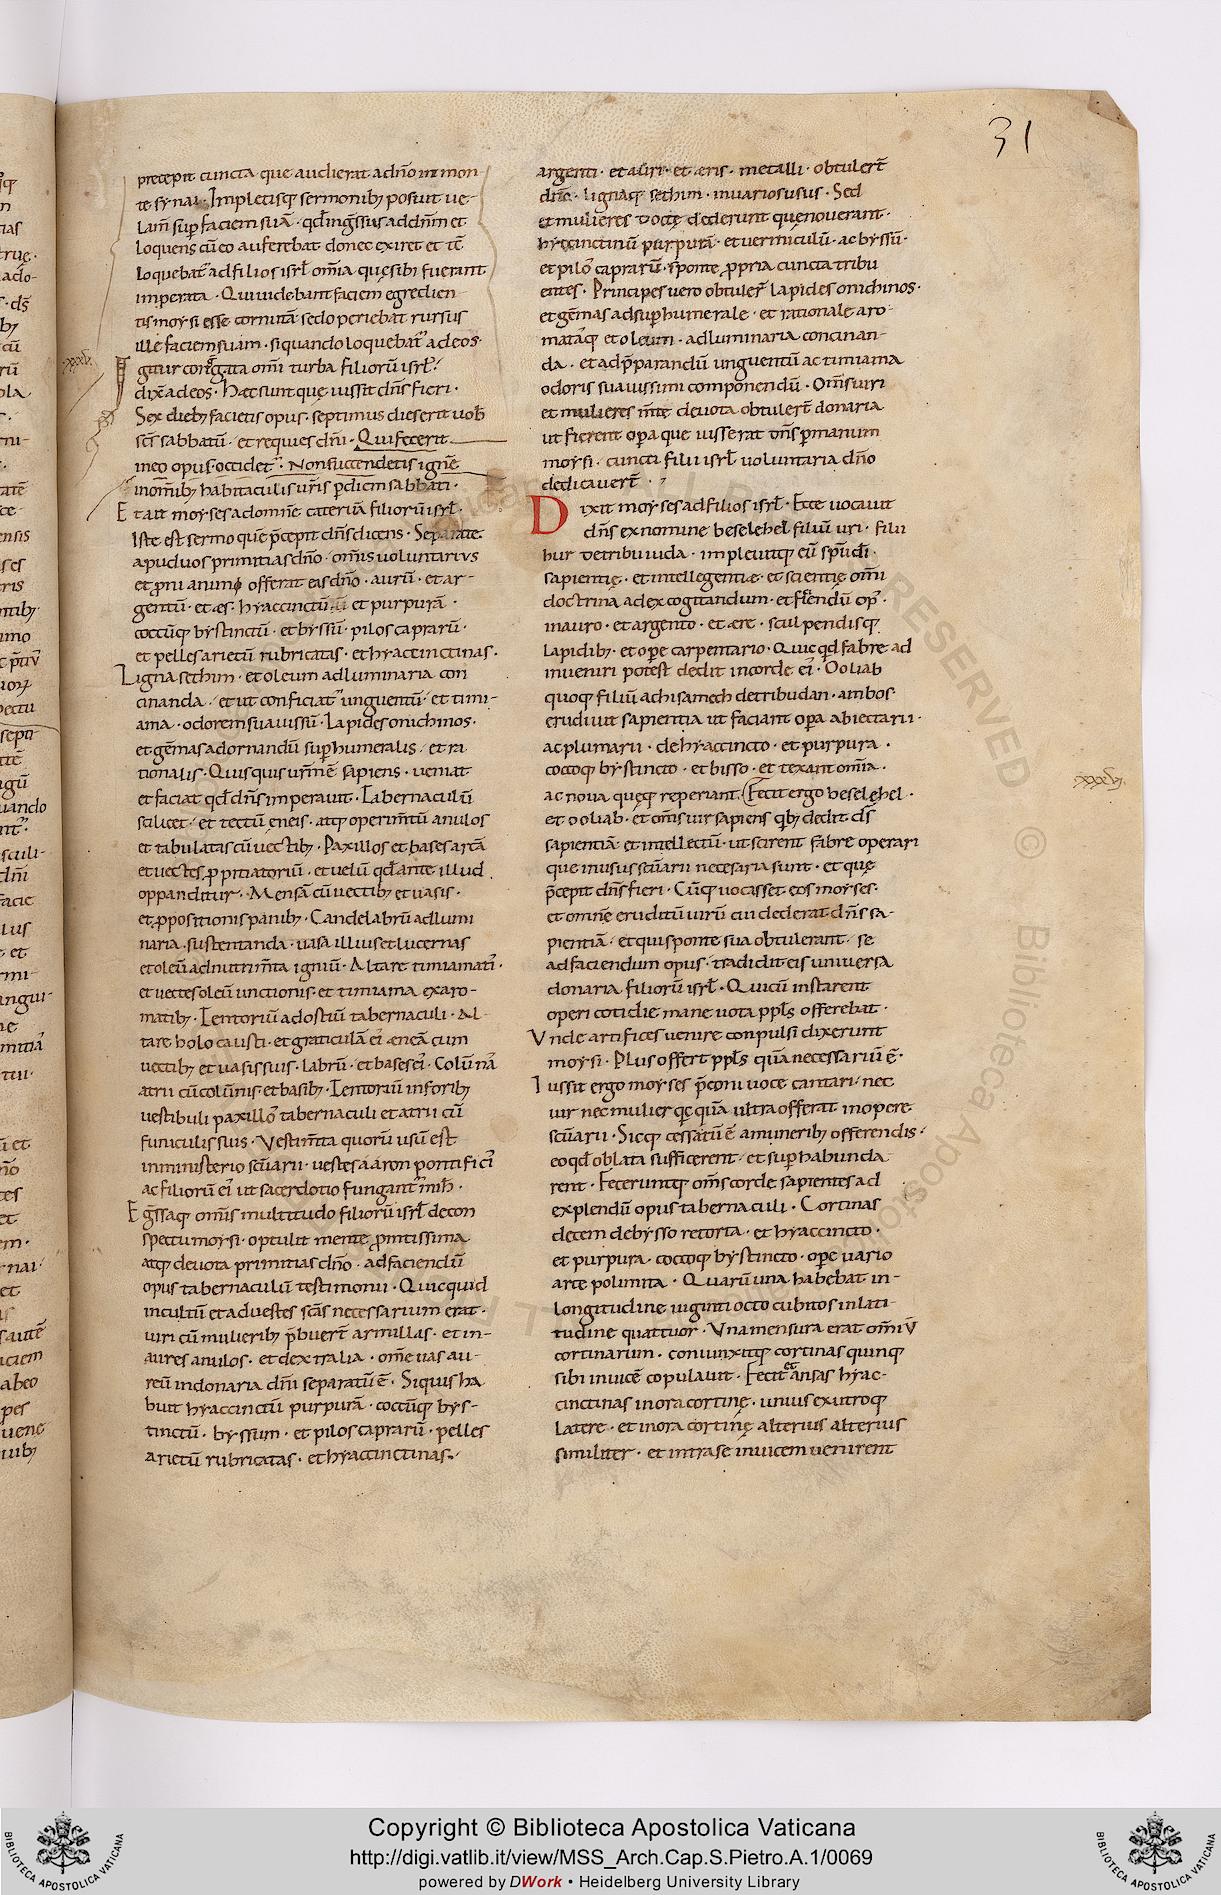 31
precepit cuncta que audierat a dño in mon
te synai · Impletisq; sermonib; posuit ue
lam̄ sup faciem suā · qđ ingr̄ssus ad dñm et
loquens cū eo auferebat donec exiret et tc̄
loquebatr̄ ad filios isrł om̄ia que sibi fuerant
imperata · Qui uidebant faciem egredien
tis moysi esse cornutā sed operiebat rursus
ille faciem suam · si quando loquebatr̄ ad eos ·
Igitur congregata om̄i turba filiorū isrł ·
dix̄ ad eos · Haec sunt que iussit dñs fieri ·
Sex dieb; facietis opus · septimus dies erit uob̄
sc̄s sabbatū · et requies dñi · Qui fecerit
in eo opus · occidetr̄ · Non succendetis ignē
in om̄ib; habitaculis ur̄is p diem sabbati ·
Et ait moyses ad omnē cateruā filiorū isrł ·
Iste est sermo quē p̄cepit dñs dicens · Separate
apud uos primitias dño · om̄is uoluntarius
et prni animo offerat eas dño · aurū · et ar-
gentū · et aes · hyacinctū et purpurā ·
coccūq; bystinctū · et byssū · pilos caprarū ·
et pelles arietū rubricatas · et hyaccinctinas ·
Ligna sethim · et oleum ad luminaria con
cinanda · et ut conficiatr̄ unguentū · et timi-
ama · odorem suauissū · Lapides onichinos ·
et gēmas ad ornandū suphumeralis · et ra
tionalis · Quisquis ur̄m ē sapiens · ueniat
et faciat qđ dñs imperauit · Tabernaculū
scilicet · et tectū eneis · atq; operim̄tū anulos
et tabulatas cū uectib; · Paxillos et bases arcā
et uectes · ppitiatoriū · et uelū qđ ante illud
oppanditur · Mensā cū uectib; et uasis ·
et ppositionis panib; · Candelabrū ad lumi
naria sustentanda · uasa illius et lucernas
et oleū ad nutrim̄ta igniū · Altare timiamatī ·
et uectes oleū unctionis · et timiama ex aro-
matib; · Tentoriū ad ostiū tabernaculi · Al-
tare holocausti · et graticulā eī aeneā cum
uectib; et uasis suis · labrū · et bases eī · Colūnā
atrii cū colūnis et basib; · Tentoriū in forib;
uestibuli paxillo tabernaculi et atrii cū
funiculis suis · Vestim̄ta quorū usū est
in ministerio scūarii · uestes aaron pontificī
ac filiorū eī ut sacerdotio fungantr̄ mih ·
Egr̄ssaq; om̄is multitudo filiorū isrł de con
spectu moysi · optulit mente pmtissima
atq; deuota primitias dño · ad faciendū
opus tabernaculū testimonii · Quicquid
in cultū et ad uestes scās necessarium erat ·
uiri cū mulierib; p̄buert̄ armillas · et in-
aures anulos · et dextralia · om̄e uas au-
reū in donaria dñi separatū ē · Siquis ha
buit hyaccinctū purpurā · coccūq; bys-
tinctū · byssum · et pilos caprarū · pelles
arietū rubricatas · et hyaccinctinas ·
argenti · et auri · et aeris · metalli · obtulert̄
dño · lignaq; sethim · in uarios usus · Sed
et mulieres docte dederunt que nouerant ·
hyccinctinū purpurā · et uermiculū · ac byssū ·
et pilo caprarū · sponte ppria cuncta tribu
entes · Principes uero obtuler̄ lapides onichinos ·
et gēmas ad suphumerale · et rationale aro-
mataq; et oleum · ad luminaria concinan-
da · et ad p̄parandū unguentū ac timiama
odoris suauissimi componendū · Om̄s uiri
et mulieres m̄te deuota obtulert̄ donaria
ut fierent opa que iusserat dñs p manum
moysi · cuncti filii isrł uoluntaria dño
dedicauert̄ ·
Dixit moyses ad filios isrł · Ecce uocauit
dñs ex nomine beselehel filiū uri · filii
hur de tribu iuda · impleuitq; eū spū di ·
sapientie · et intellegentie · et scientie om̄i
doctrina ad excogitandum · et faciendū op̄ ·
in auro · et argento · et aere · sculpendisq;
lapidib; · et ope carpentario · Quicqđ fabre ad
inueniri potest dedit in corde eī · Ooliab
quoq; filiū achisamech de tribu dan · ambos
erudiuit sapientia ut faciant opa abiectarii ·
ac plumarii · de hyaccincto · et purpura ·
coccoq; bystincto · et bisso · et texant om̄ia ·
ac noua queq; reperiant · Fecit ergo beselehel ·
et ooliab · et om̄s uir sapiens qb; dedit dñs
sapientiā et intellectū · ut scirent fabre operari
que in usus scūarii necesaria sunt · et que
p̄cepit dñs fieri · Cūq; uocasset eos moyses ·
et omnē eruditū uirū cui dederat dñs sa-
pientiā · et qui sponte sua obtulerant · se
ad faciendum opus · tradidit eis uniuersa
donaria filiorū isrł · Qui cū instarent
operi cotidie mane uota pplꝰs offerebat ·
Vnde artifices uenire conpulsi dixerunt
moysi · Plus offert pplꝰs quā necessariū ē ·
Iussit ergo moyses p̄coni uoce cantari · nec
uir nec mulier qcquā ultra offerat in opere
scūarii · Sicq; cessatū ē a munerib; offerendis ·
eo qđ oblata sufficerent · et suphabunda
rent · Feceruntq; om̄s corde sapientes ad
explendū opus tabernaculi · Cortinas
decem de bysso retorta · et hyaccincto ·
et purpura · coccoq; bystincto · ope uario
arte polimita · Quarū una habebat in-
longitudine uiginti octo cubitos in lati
tudine quattuor · Vna mensura erat om̄iū
cortinarum · coniunxitq; cortinas quinq;
sibi inuicē copulauit · Fecit et ansas hyac-
cinctinas in ora cortine · unius ex utroq;
latere · et in ora cortine alterius alterius
similiter · et intra se inuicem uenirent
xxxv
xxxvi
Copyright © Biblioteca Apostolica Vaticana
http://digi.vatlib.it/view/MSS_Arch.Cap.S.Pietro.A.1/0069
powered by DWork • Heidelberg University Library